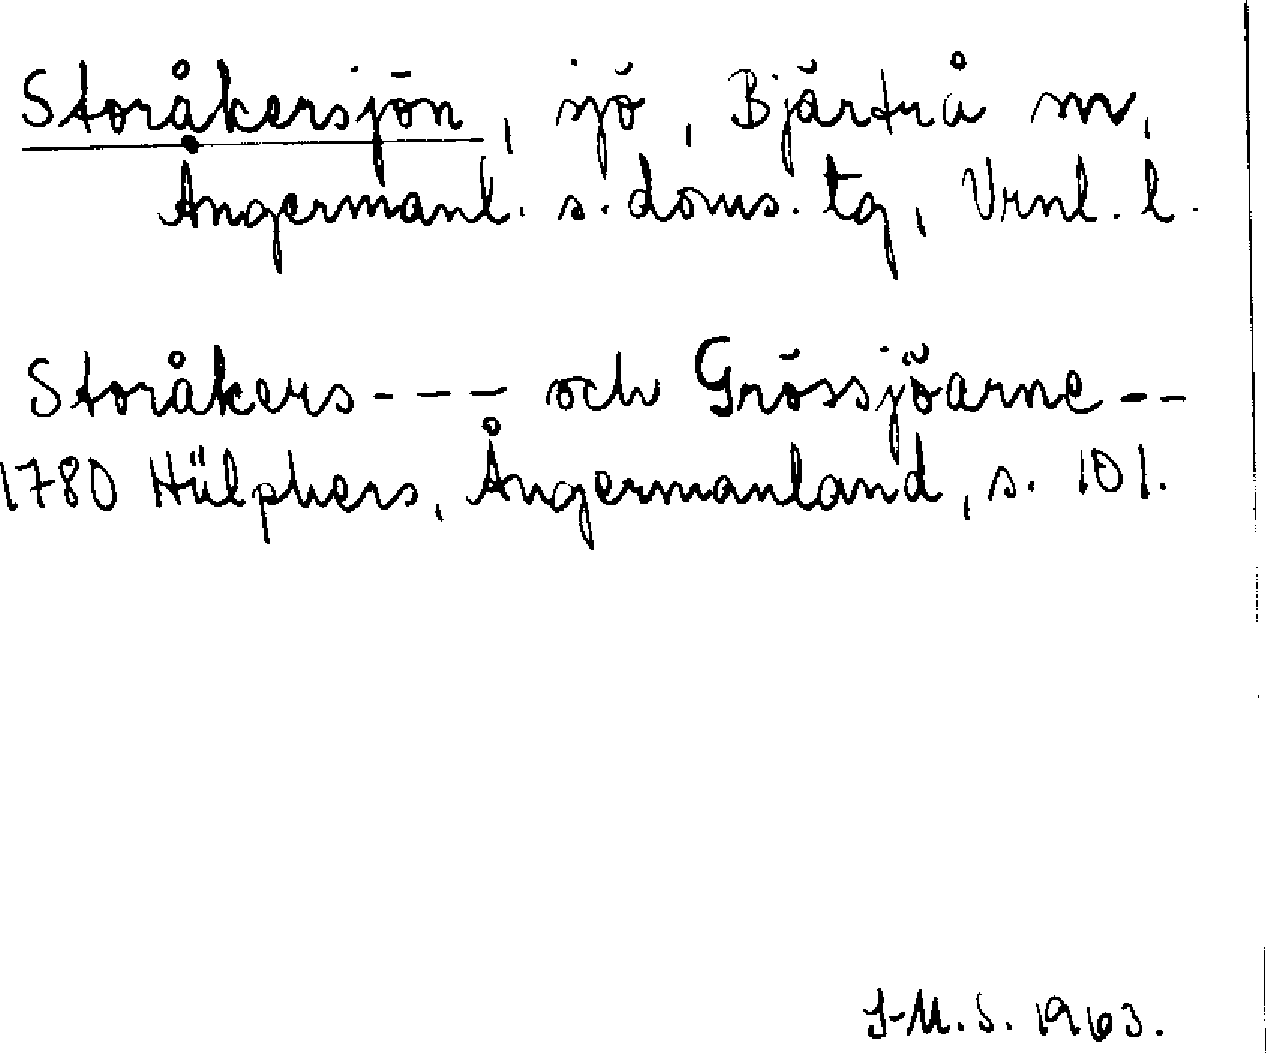 Storåkersjön, sjö, Bjärtrå sn,
Ångermanl. s. doms. tg, Vrnl. l.
Storåkers - - - och Grössjöarne - -
1780 Hülphers, Ångermanland, s. 101.
I-M.S. 1963.